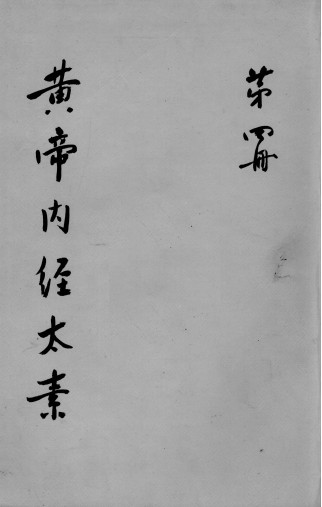 第四册
黄帝内经太素